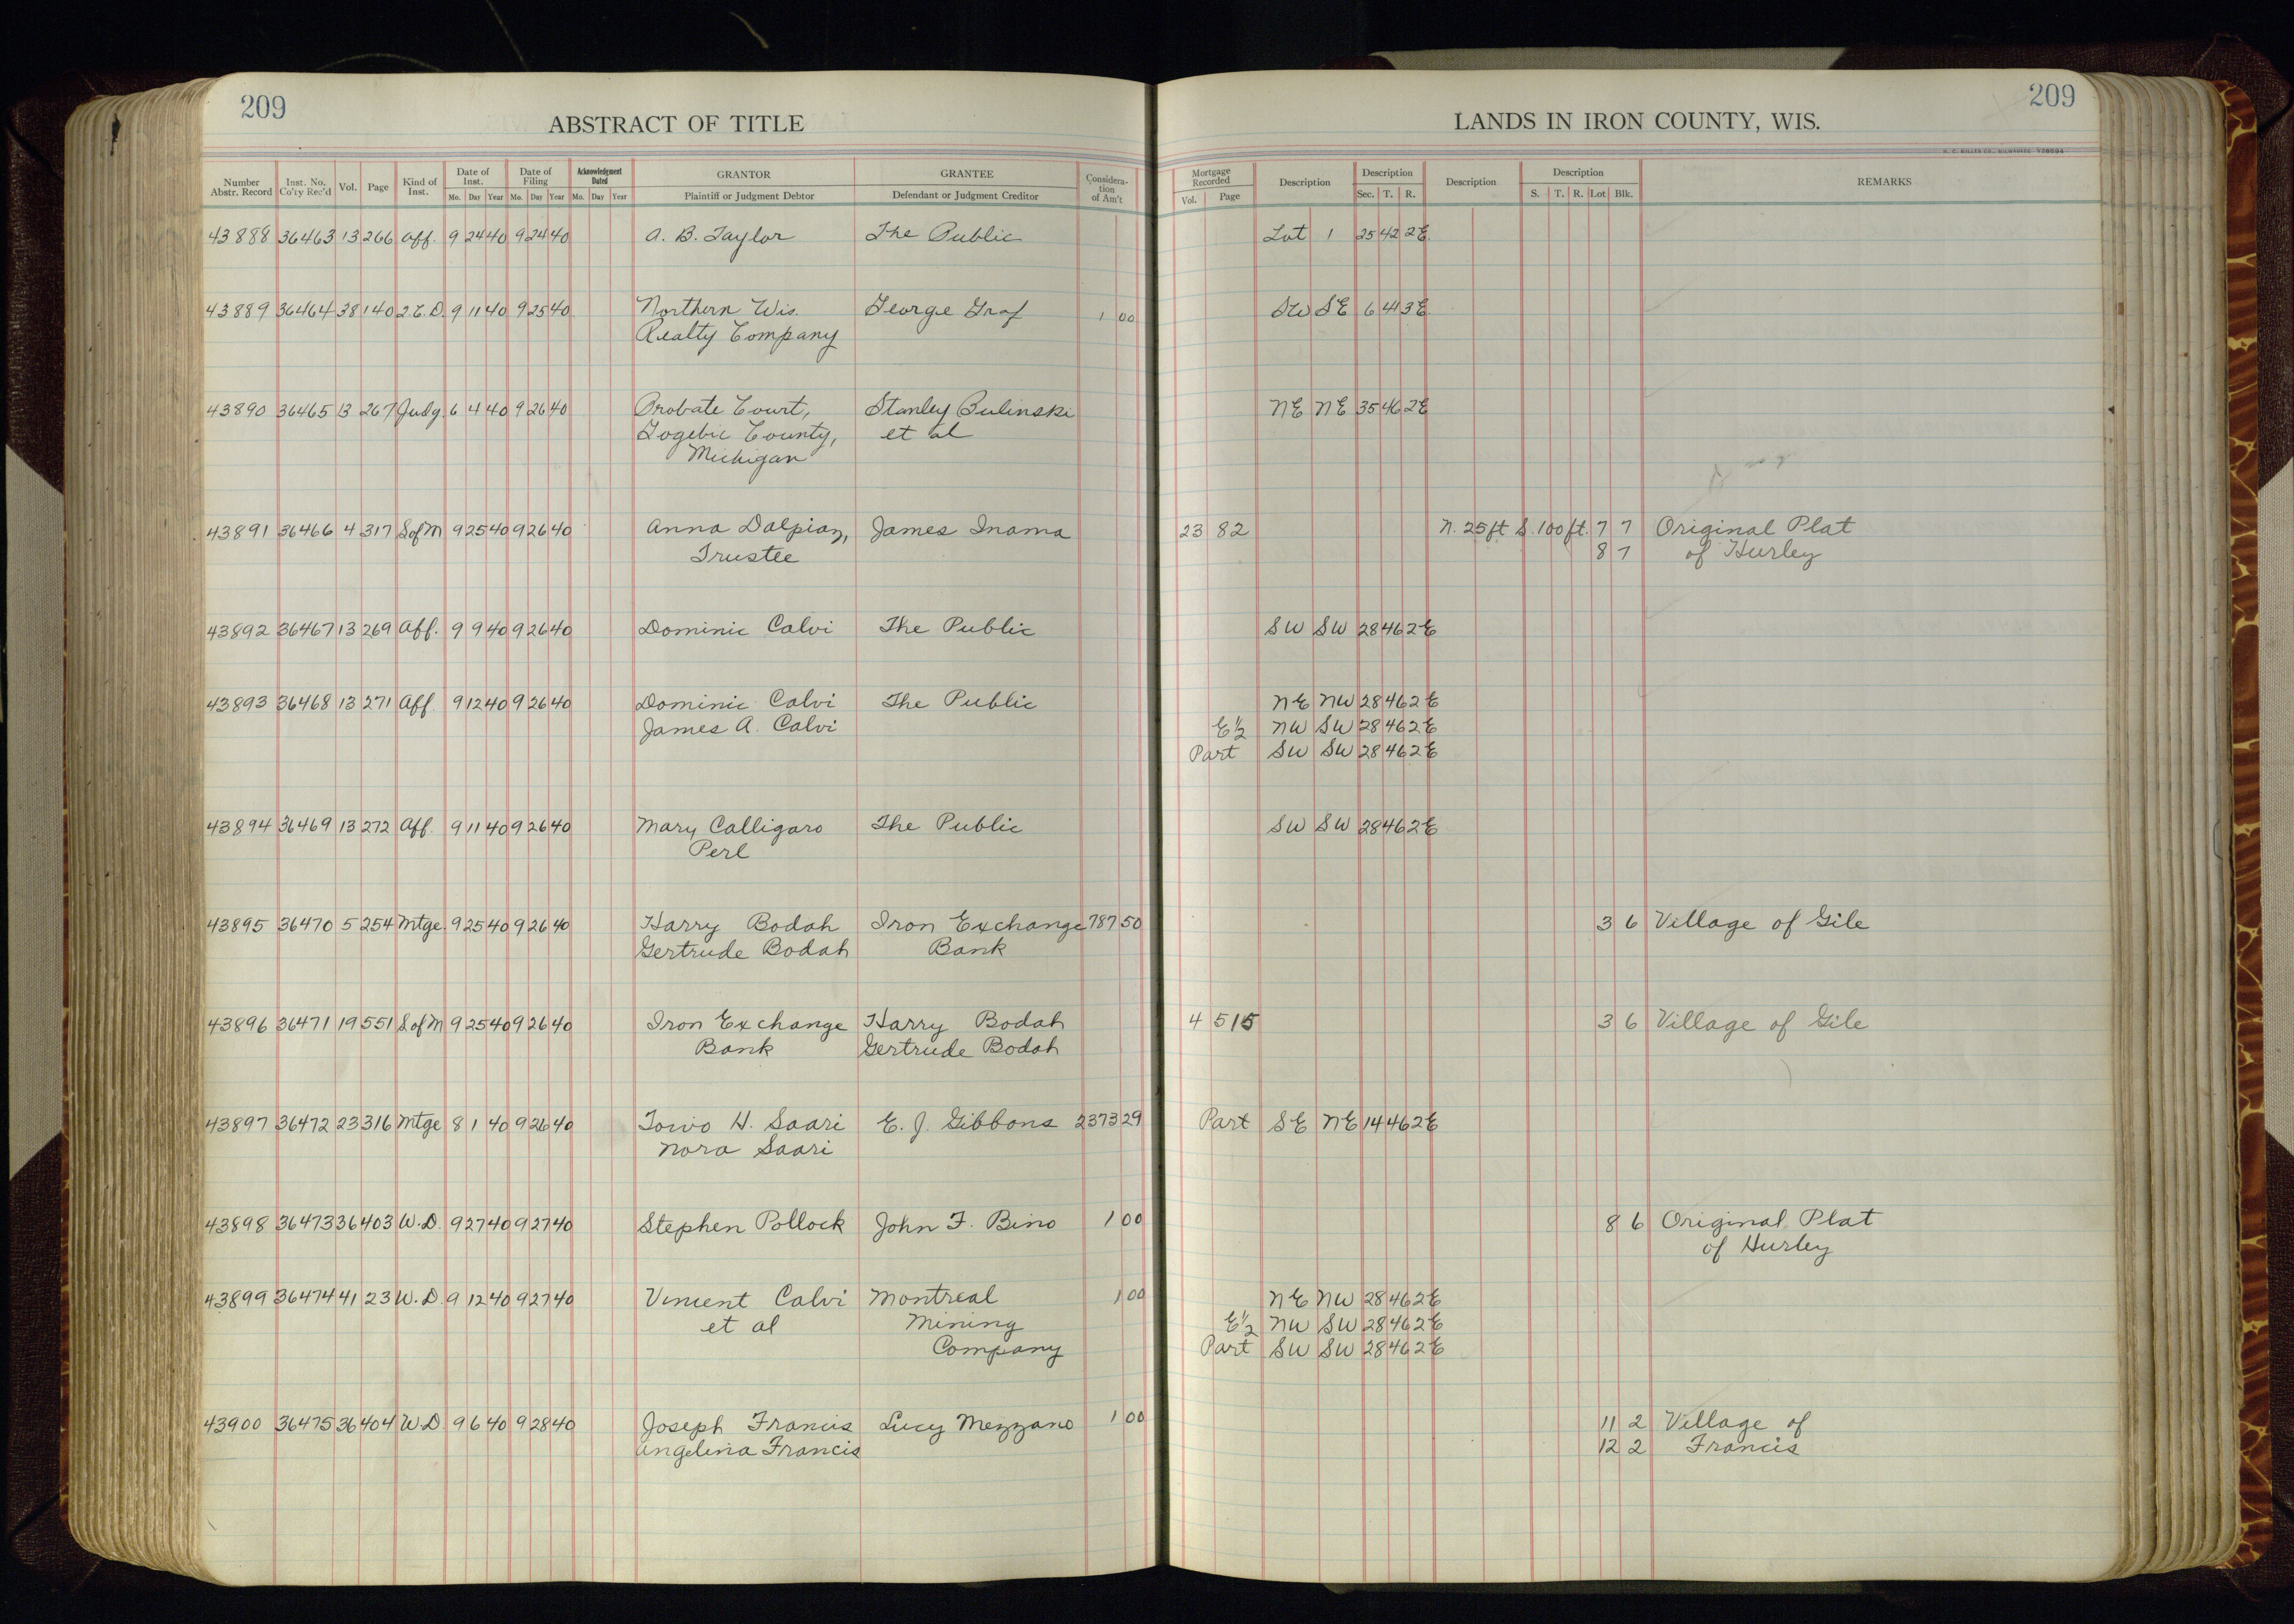 209
209
ABSTRACT OF TITLE
LANDS IN IRON COUNTY, WIS.
H. C. MILLER CO., MILWAUKEE
Number Abstr. Record | Inst. No. Co'ty Rec'd | Vol. | Page | Kind of Inst. | Date of Inst. Mo. Day Year | Date of Filing Mo. Day Year | Acknowledgment Dated Mo. Day Year | GRANTOR Plaintiff or Judgment Debtor | GRANTEE Defendant or Judgment Creditor | Consideration of Am't | Mortgage Recorded Vol. Page | Description | Description Sec. T. R. | Description | Description S. T. R. Lot Blk. | REMARKS
43888 36463 13 266 Aff. 9 24 40 9 24 40 A. B. Taylor The Public Lot 1 25 42 2E.
43889 36464 38 140 2.C.D. 9 11 40 9 25 40 Northern Wis. George Graf 1 00 SW SE 6 41 3E.
Realty Company
43890 36465 13 267 Judg. 6 4 40 9 26 40 Probate Court, Stanley Bulinski NE NE 35 46 2E
Gogebic County, et al
Michigan
43891 36466 4 317 S of M 9 25 40 9 26 40 Anna Dalpiaz, James Inama 23 82 N. 25 ft S. 100 ft. 7 7 Original Plat
Trustee 8 7 of Hurley
43892 36467 13 269 Aff. 9 9 40 9 26 40 Dominic Calvi The Public SW SW 28 46 2E
43893 36468 13 271 Aff. 9 12 40 9 26 40 Dominic Calvi The Public NE NW 28 46 2E
James A. Calvi E½ NW SW 28 46 2E
Part SW SW 28 46 2E
43894 36469 13 272 Aff. 9 11 40 9 26 40 Mary Calligaro The Public SW SW 28 46 2E
Perl
43895 36470 5 254 Mtge. 9 25 40 9 26 40 Harry Bodah Iron Exchange 787 50 3 6 Village of Gile
Gertrude Bodah Bank
43896 36471 19 551 S of M 9 25 40 9 26 40 Iron Exchange Harry Bodah 4 515 3 6 Village of Gile
Bank Gertrude Bodah
43897 36472 23 316 Mtge 8 1 40 9 26 40 Toivo H. Saari E. J. Gibbons 2373 29 Part SE NE 14 46 2E
Nora Saari
43898 36473 36 403 W.D. 9 27 40 9 27 40 Stephen Pollock John F. Bino 1 00 8 6 Original Plat
of Hurley
43899 36474 41 23 W.D. 9 12 40 9 27 40 Vincent Calvi Montreal 1 00 NE NW 28 46 2E
et al Mining E½ NW SW 28 46 2E
Company Part SW SW 28 46 2E
43900 36475 36 404 W.D. 9 6 40 9 28 40 Joseph Francis Lucy Mezzano 1 00 11 2 Village of
Angelina Francis 12 2 Francis